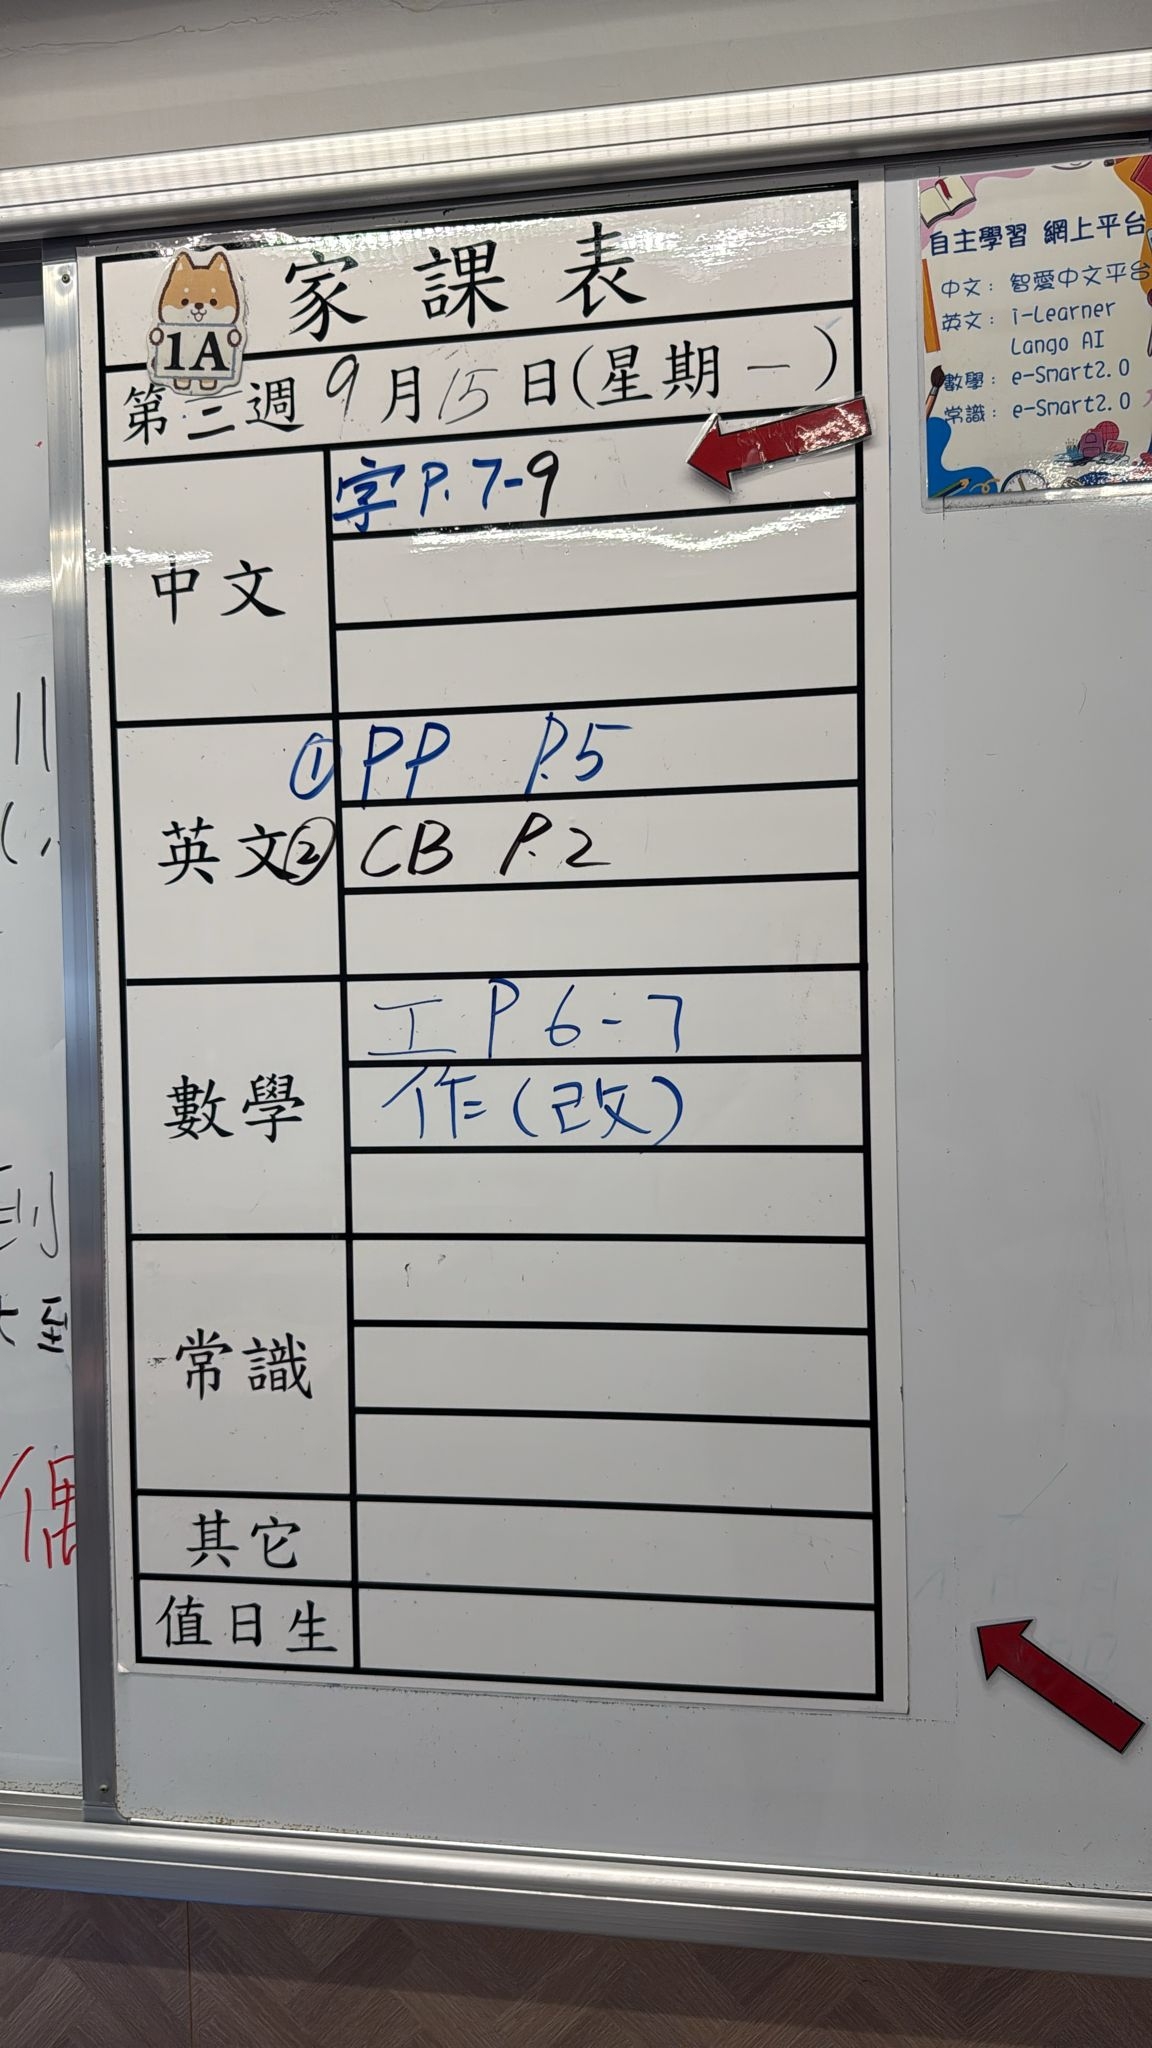 家課表
1A
第二週 9月15日(星期一)
中文
字 P.7-9
英文
① PP P.5
② CB P.2
數學
工 P 6-7
作(改)
常識
其它
值日生
自主學習 網上平台
中文: 智愛中文平台
英文: i-Learner
Lango AI
數學: e-Smart2.0
常識: e-Smart2.0